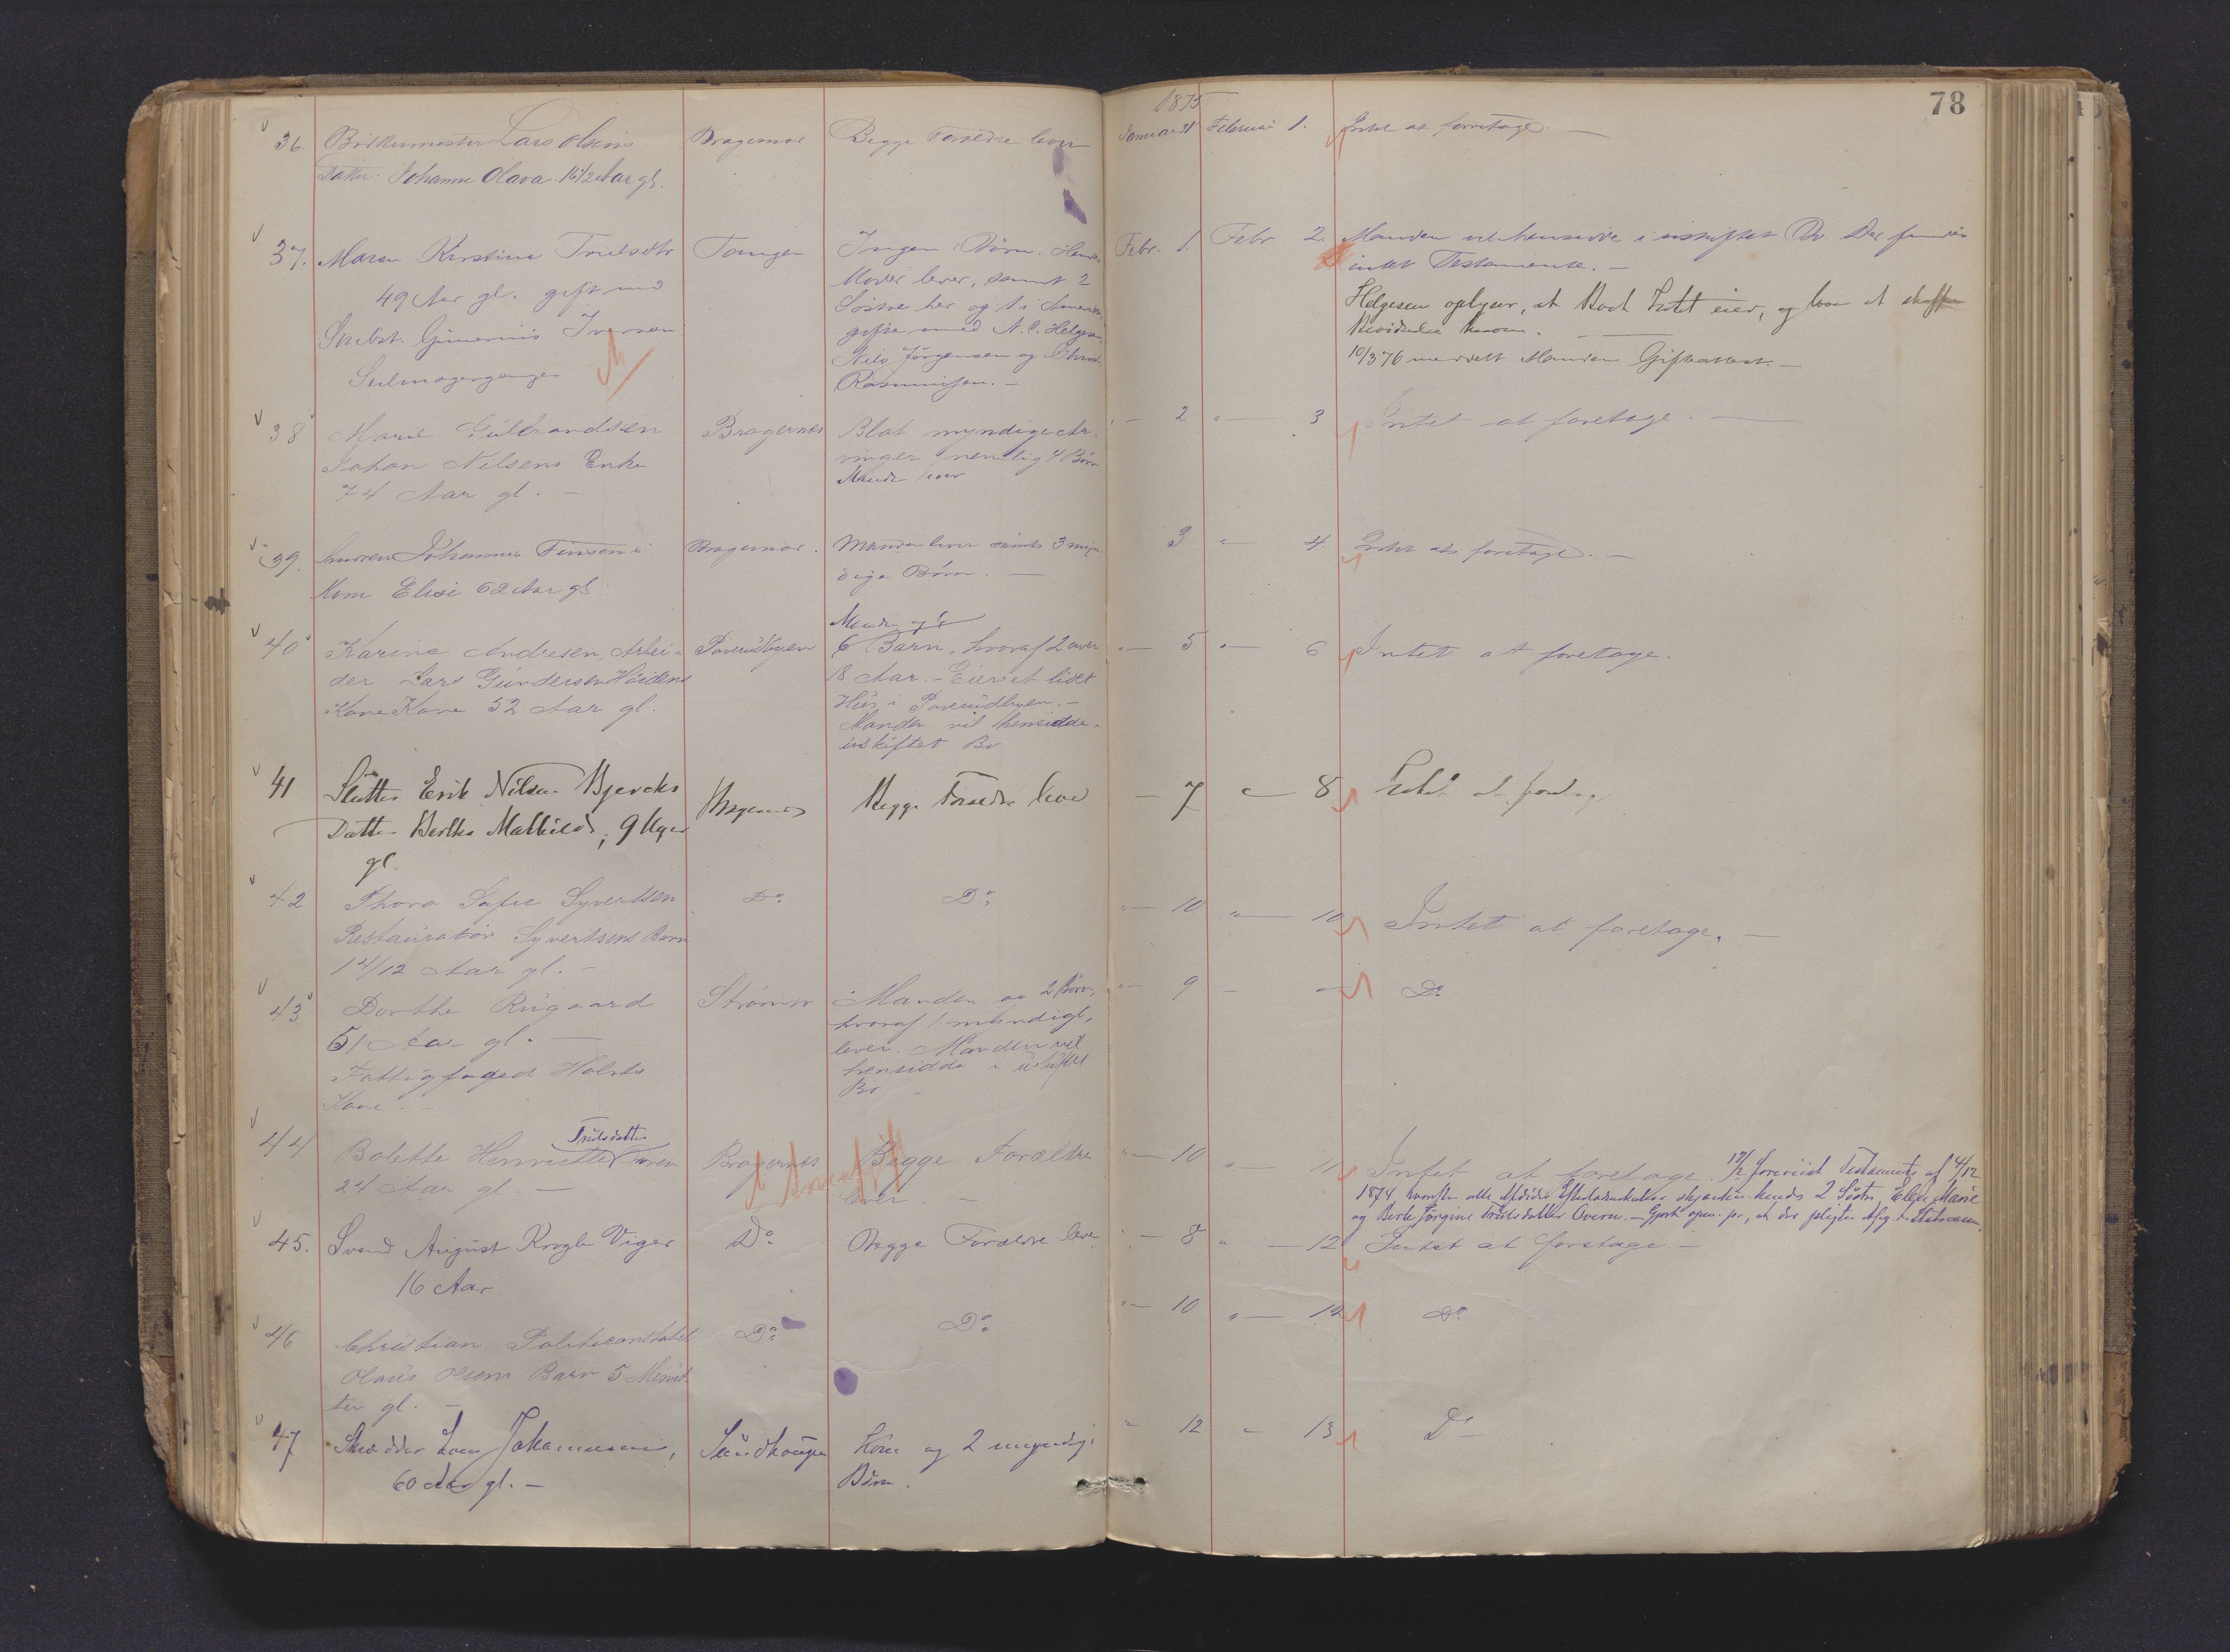 1875
78
36. Bødkermester Lars Olsens Bragernæs Begge Forældre lever Januar 31 Februar 1. Intet at foretage. —
Datter: Johanne Olava 16 1/2 Aar gl.
37. Maren Kirstine Truelsdtr Tangen Ingen Børn. Hendes Febr. 1 Febr 2. Manden vil hensidde i uskiftet Bo. Der findes
49 Aar gl. gift med Moder lever, samt 2 intet Testamente. —
Gunerius Iversen Søstre her og 1 i Amerika,
gifte med N. C. Helgesen,
Nils Jörgensen og
Rasmussen. —
Helgesen oplyser, at Boet Intet eier, og lover at skaffe
10/3 76 meddelt Manden Gifteattest. —
38 Marie Gulbrandsen Bragernæs Blot myndige Ar- " — 2 " — 3 Intet at foretage. —
Johan Nilsens Enke vinger nemlig 4 Børn
74 Aar gl. —
39. Johannes Finsens Bragernæs. Manden lever samt 3 myn- 3 " 4. Intet at foretage. —
Kone Elise 62 Aar gl. dige Børn. —
Manden og
40 Karine Andresen, Arbei- 6 Børn, hvoraf 2 over " — 5 " — 6 Intet at foretage.
der Lars Gundersen Höidens 18 Aar. — Eier et lidet
Kone 52 Aar gl. Hus i
Manden vil hensidde i
uskiftet Bo
41 Erik Nilsen Bjercks Bragernæs Begge Forældre lever — 7 " — 8 Intet at foretage
Datter Bertha Mathilde, 9 Uger
gl.
42 Thora Sofie Syvertsen Do. Do. " — 10 " — 10 Intet at foretage. —
Restauratør Syvertsens Barn
1 4/12 Aar gl. —
43 Dorthe Rugaard Strømsø Manden og 2 Børn, " — 9 — — Do.
51 Aar gl. — hvoraf 1 myndigt,
Fattigfoged Holsts lever. Manden vil
Kone. — hensidde i uskiftet
Bo —
Trulsdatter
44 Bolette Henriette Overn Bragernæs Begge Forældre " — 10 " — 11 Intet at foretage. 12/2 foreviist Testamente af 4/12
24 Aar gl. — lever. — 1874, hvorefter alle Afdødes Efterladenskaber skjænkes hendes 2 Söstre, Elise Marie
og Berte Jörgine Trulsdatter Overn. —
45. Svend August Krogh Viger Do. Begge Forældre lever " — 8 " — 12 Intet at foretage. —
16 Aar
46 Christian Politiconstabel Do. Do. " — 10 " — 12 Do.
Olaus Olsens Barn 5 Minut-
ter gl. —
47 Skrædder Johannesen, Kone og 2 umyndige " 12 " 13 Do
60 Aar gl. — Børn.